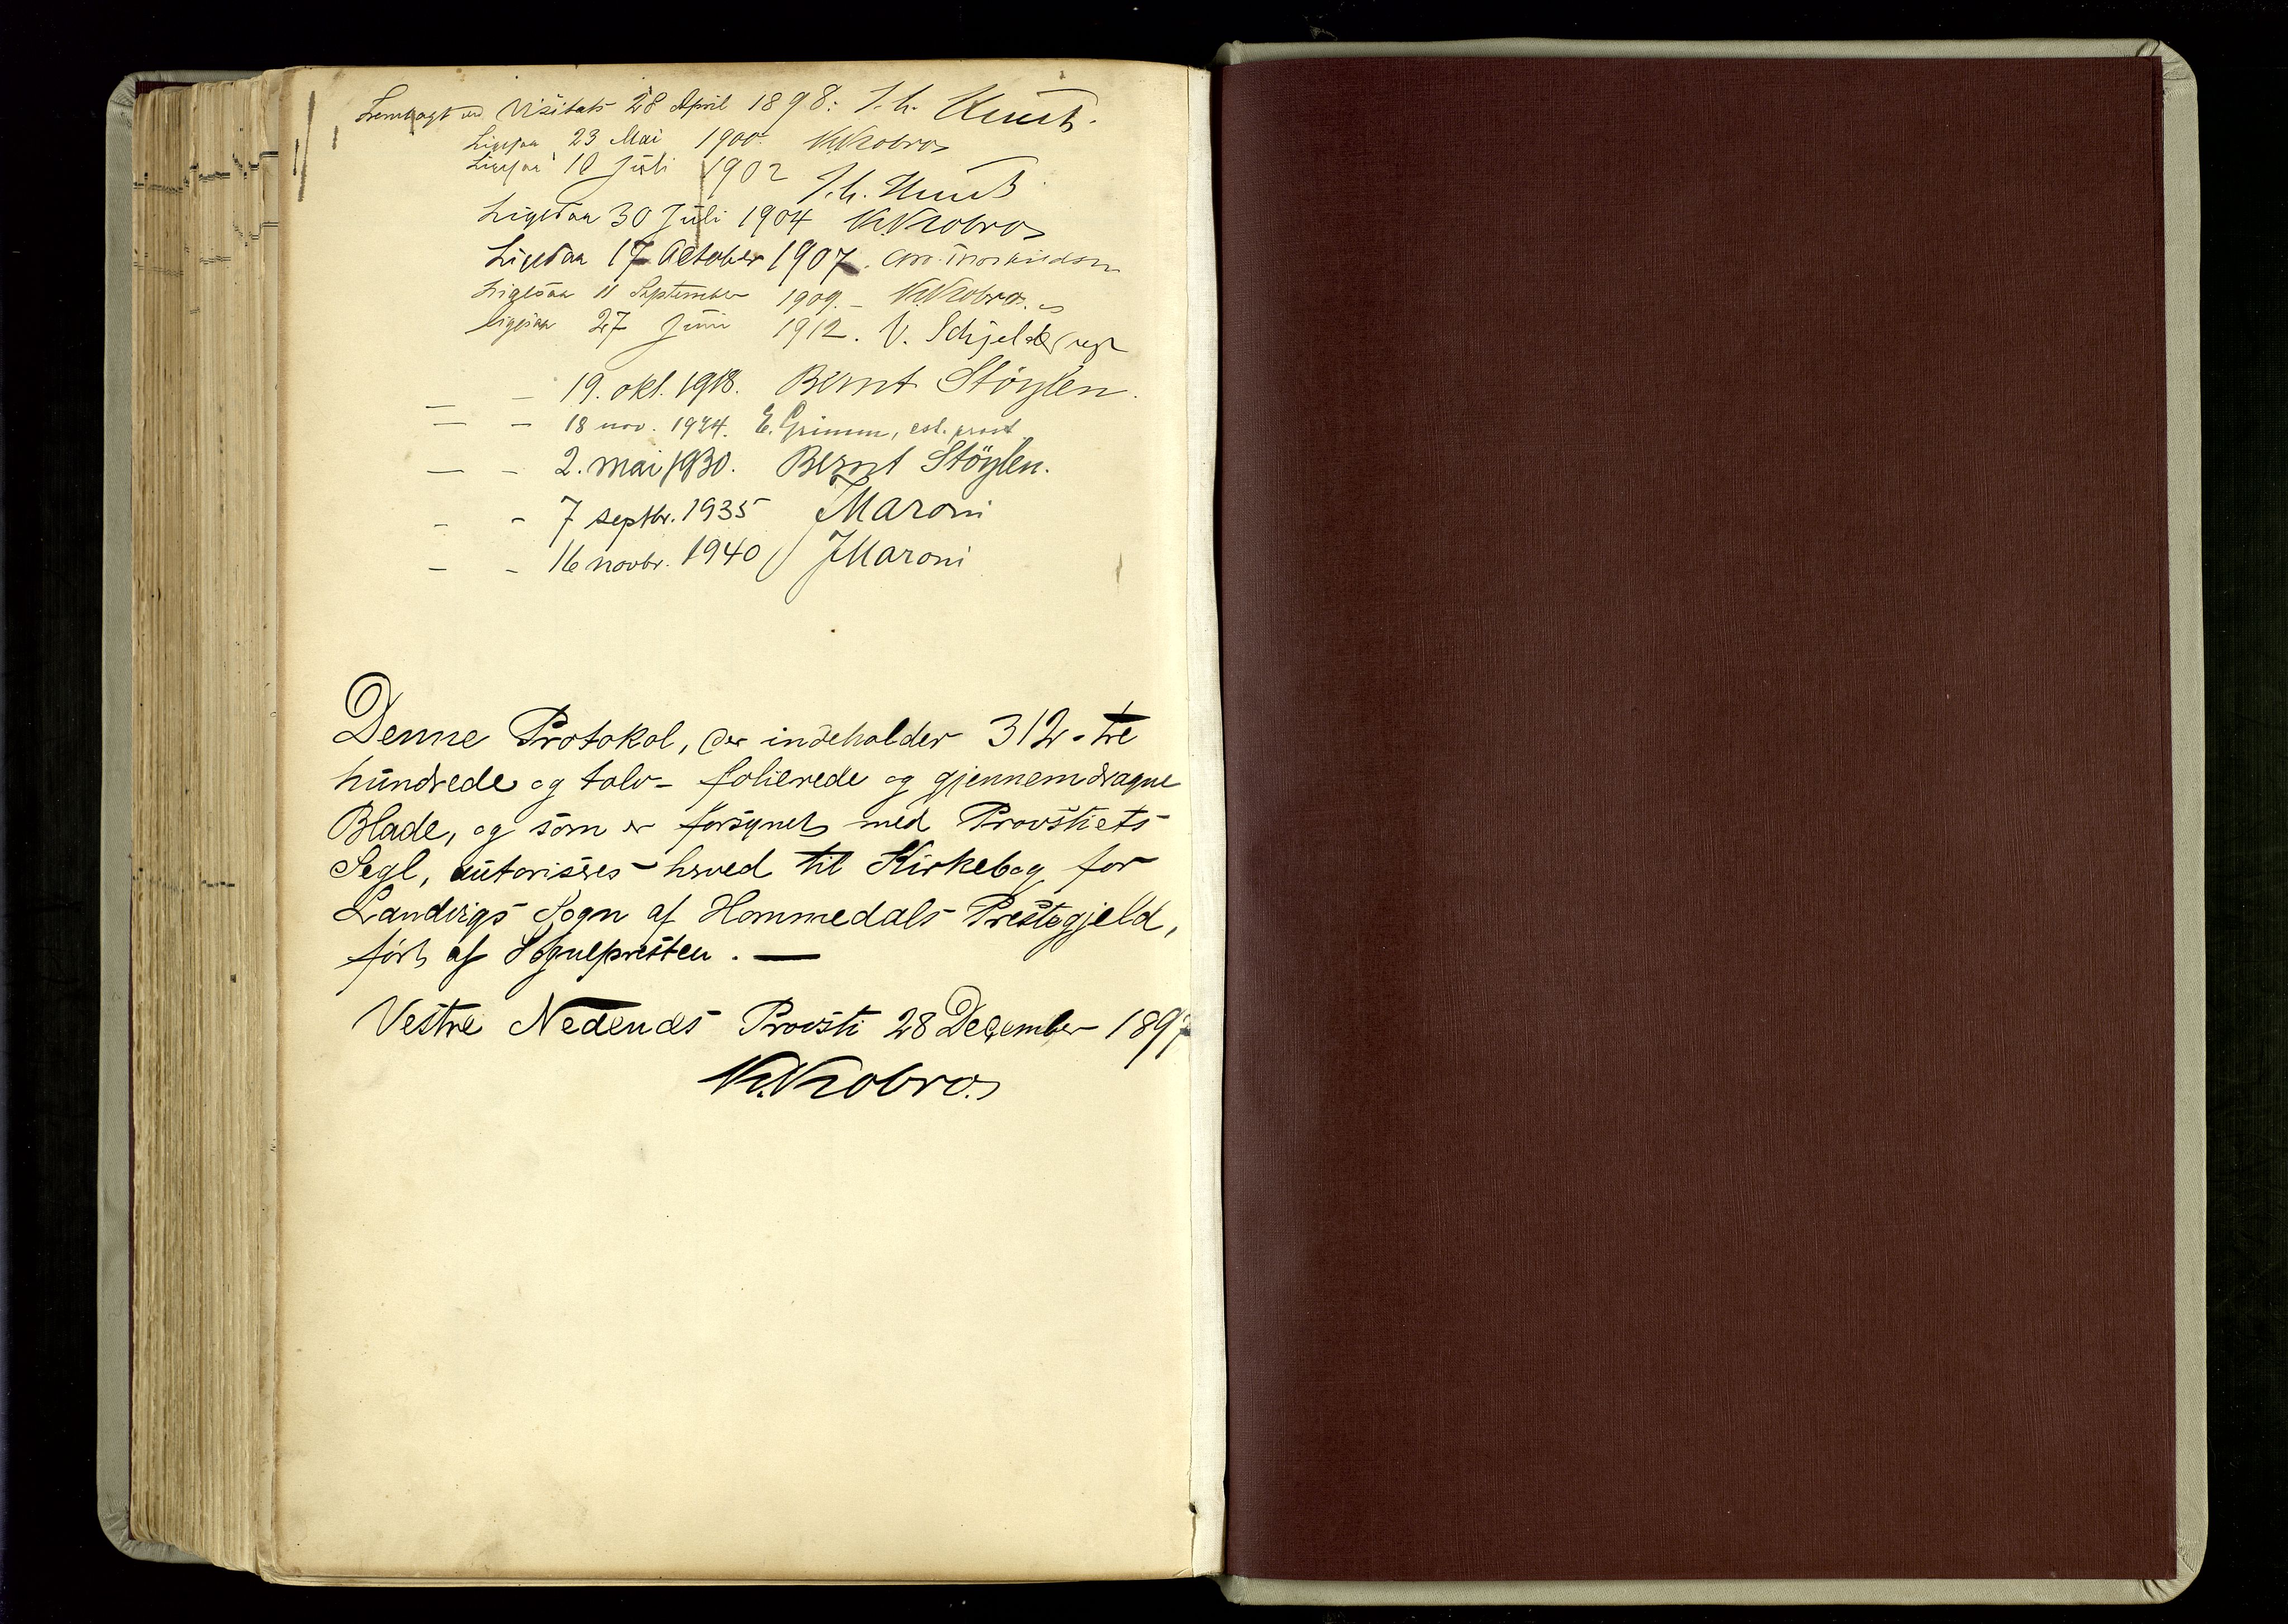 Fremlagt ved Visitats 28 April 1898: J. Chr. Heuch.
Ligesaa 23 Mai 1900. K. Krobros
Ligesaa 10 Juli 1902 J. Chr. Heuch
Ligesaa 30 Juli 1904 K. Krobros
Ligesaa 17 October 1907.
Ligesaa 11 September 1909. – K. Krobros.
Ligesaa 27 Juni 1912. V. Schjelderup
— – 19. okt. 1918. Bernt Støylen.
— – 18 nov. 1924. E. Grimm, cst. prost
— – 2. mai 1930. Bernt Støylen.
– – 7 septbr. 1935 JMaroni
– – 16 novbr. 1940 JMaroni
Denne Protokol, der indeholder 312 - tre
hundrede og tolv - folierede og gjennemdragne
Blade, og som er forsynet med Provstiets
Segl, autoriseres herved til Kirkebog for
Landvigs Sogn af Hommedals Prestegjeld,
ført af Sognepresten. —
Vestre Nedenæs Provsti 28 December 1897
K. Krobros